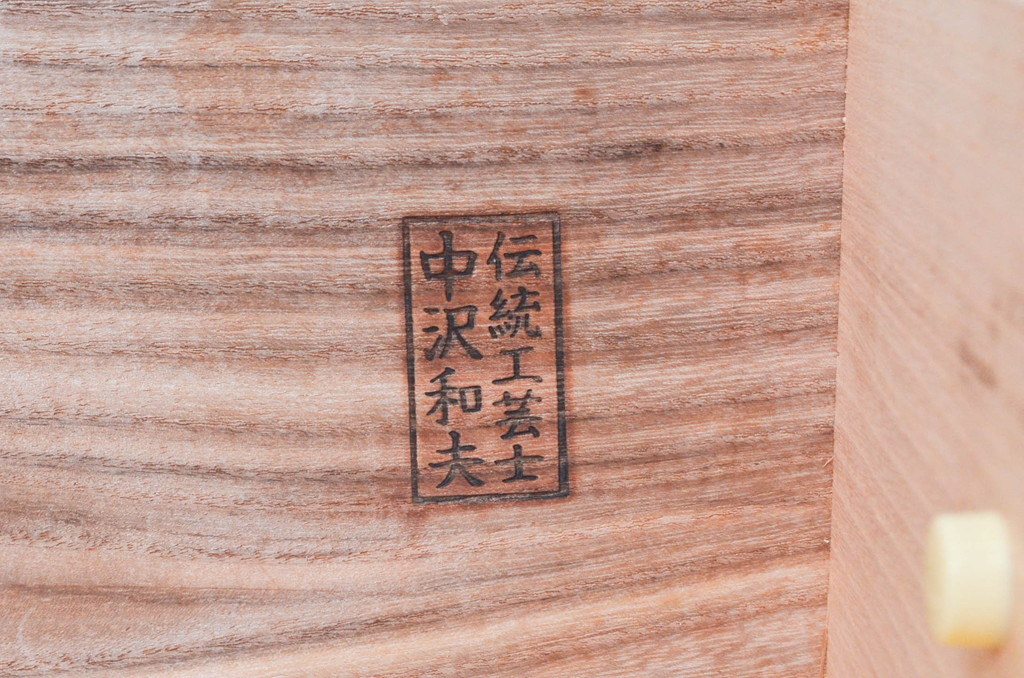 伝統工芸士
中沢和夫